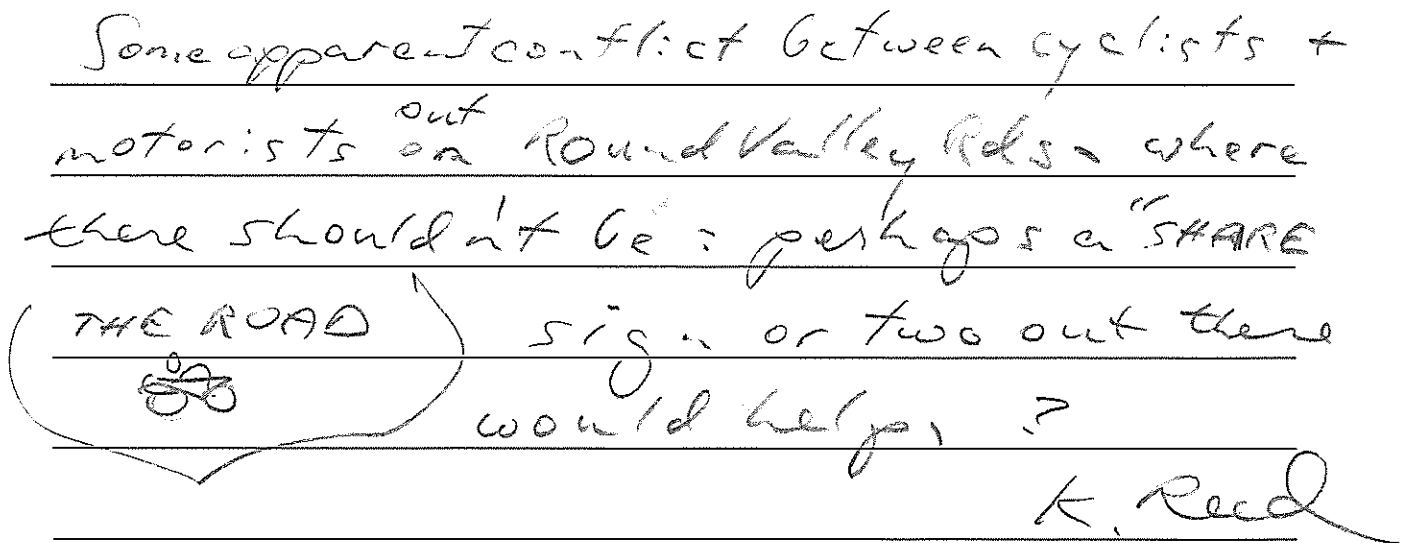 Some apparent conflict between cyclists +
motorists out on Round Valley Rds. where
there shouldn't be : perhaps a "SHARE
THE ROAD sign or two out there
would help, ?
K. Reed